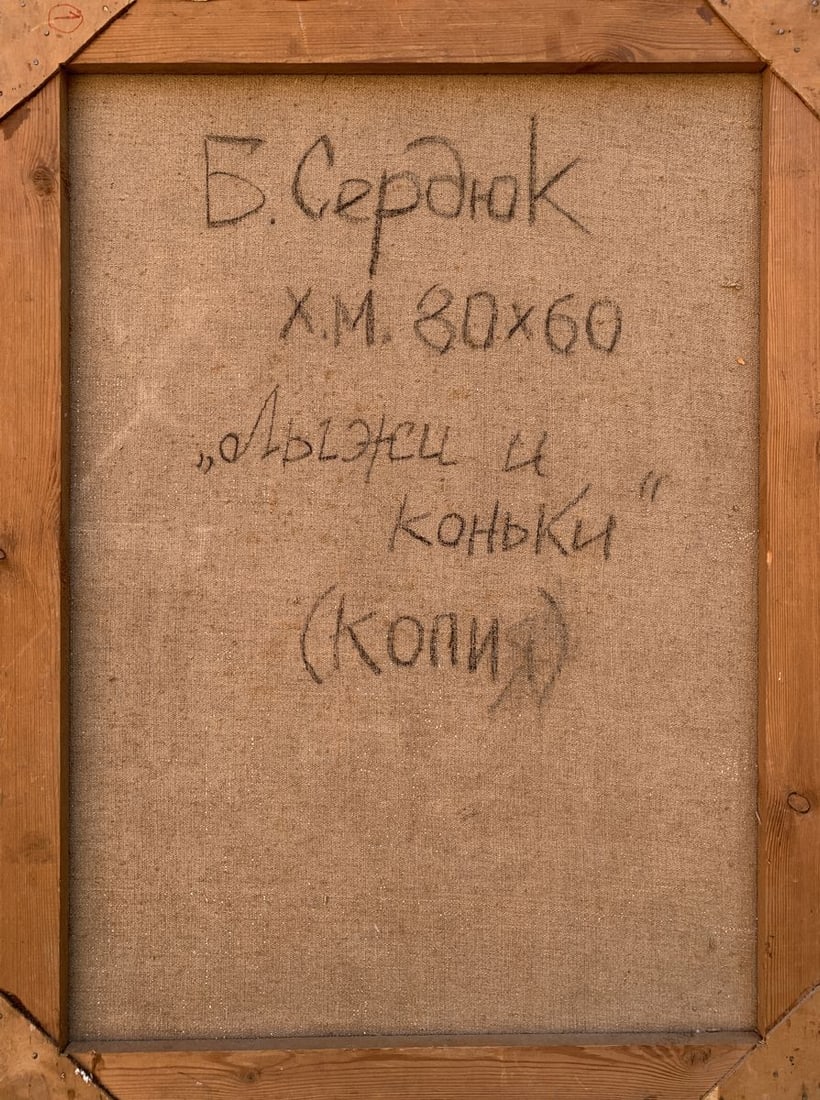 Б. Сердюк
Х.М. 80х60
„Лыжи и
коньки"
(копия)